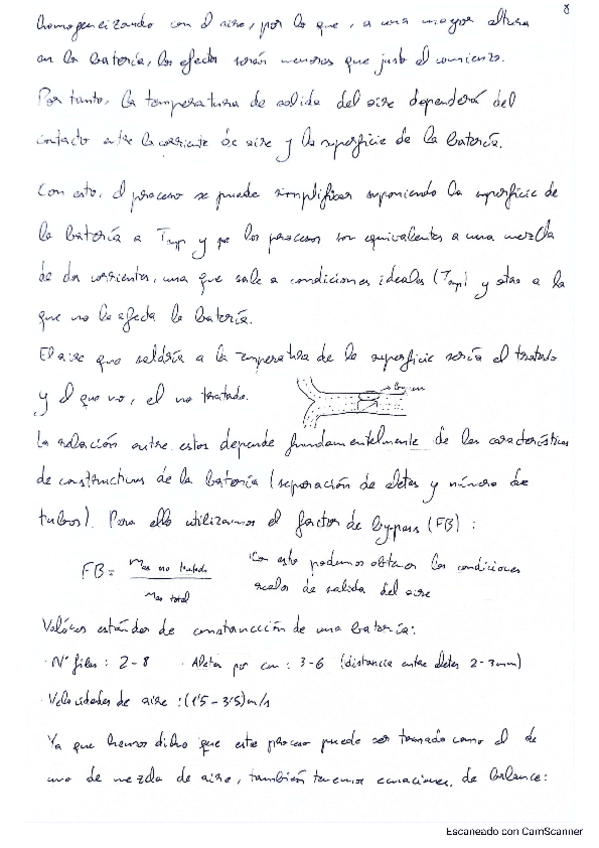 8
homogeneizando con el aire, por lo que, a una mayor altura
en la batería, los efectos serán menores que justo al comienzo.
Por tanto, la temperatura de salida del aire dependerá del
contacto entre la corriente de aire y la superficie de la batería.
Con esto, el proceso se puede simplificar suponiendo la superficie de
la batería a Tmp y que los procesos son equivalentes a una mezcla
de dos corrientes, una que sale a condiciones ideales (Tmp) y otra a la
que no le afecta la batería.
El aire que saldría a la temperatura de la superficie sería el tratado
y el que no, el no tratado.
La relación entre estos depende fundamentalmente de las características
de constructivas de la batería (separación de aletas y número de
tubos). Para ello utilizamos el factor de bypass (FB):
FB = mas no tratado / mas total
Con esto podemos obtener las condiciones
reales de salida del aire
Valores estándar de construcción de una batería:
· Nº filas: 2-8 · Aletas por cm: 3-6 (distancia entre aletas 2-3mm)
· Velocidades de aire: (1'5 - 3'5) m/s
Ya que hemos dicho que este proceso puede ser tomado como el de
uno de mezcla de aire, también tenemos ecuaciones de balance:
Escaneado con CamScanner